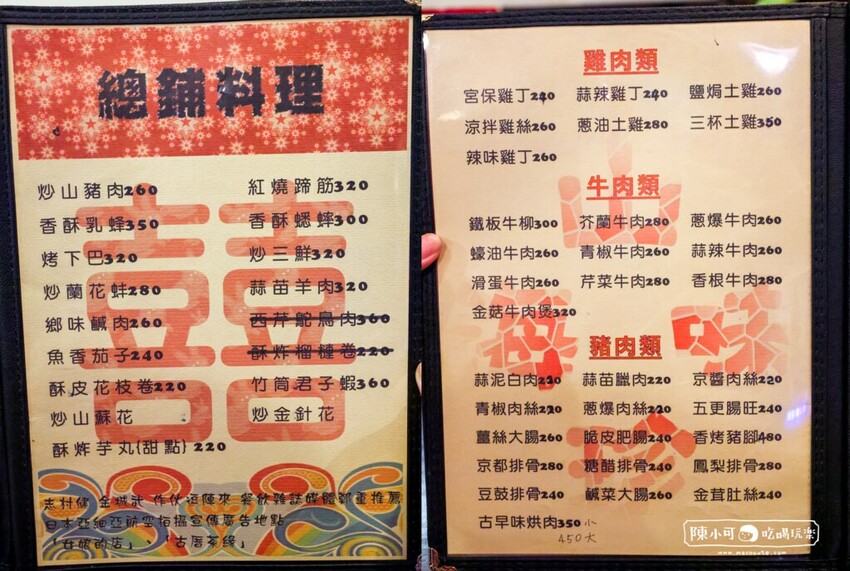 總鋪料理
炒山豬肉260 紅燒蹄筋320
香酥乳蜂350 香酥蟋蟀300
烤下巴320 炒三鮮320
炒蘭花蚌280 蒜苗羊肉320
鄉味鹹肉260 西芹鴕鳥肉360
魚香茄子240 酥炸榴槤卷220
酥皮花枝卷220 竹筒君子蝦360
炒山蘇花 炒金針花
酥炸芋丸(甜點) 220
志村健 金城武 作伙逗陣來 餐飲雜誌媒體鄭重推薦
日本亞細亞航空指揮宣傳廣告地點
「女娘的店」、「古厝茶緣」
雞肉類
宮保雞丁240 蒜辣雞丁240 鹽焗土雞260
涼拌雞絲260 蔥油土雞280 三杯土雞350
辣味雞丁260
牛肉類
鐵板牛柳300 芥蘭牛肉280 蔥爆牛肉260
蠔油牛肉260 青椒牛肉260 蒜辣牛肉260
滑蛋牛肉260 芹菜牛肉280 香根牛肉280
金菇牛肉煲320
豬肉類
蒜泥白肉220 蒜苗臘肉220 京醬肉絲220
青椒肉絲220 蔥爆肉絲220 五更腸旺240
薑絲大腸260 脆皮肥腸240 香烤豬腳480
京都排骨280 糖醋排骨240 鳳梨排骨280
豆鼓排骨240 鹹菜大腸260 金茸肚絲240
古早味烘肉350小
450大
陳小可 吃喝玩樂